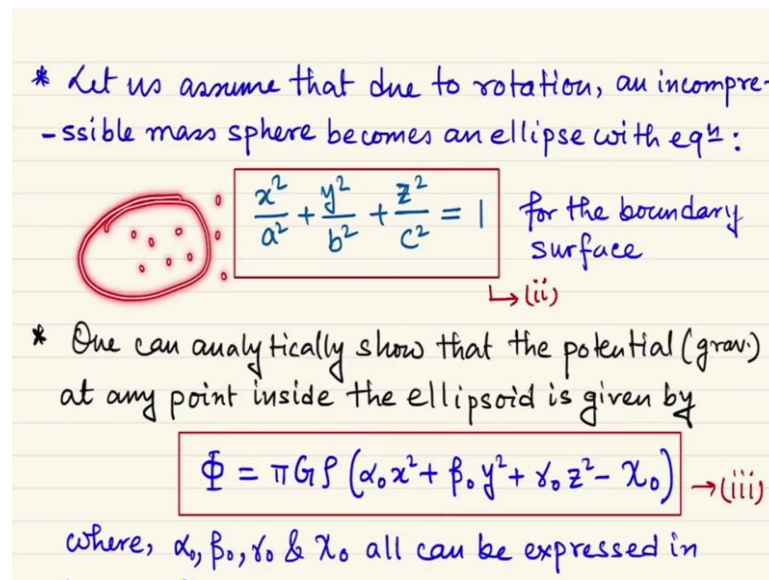 * Let us assume that due to rotation, an incompre-
-ssible mass sphere becomes an ellipse with eqⁿ:
x²/a² + y²/b² + z²/c² = 1 for the boundary
surface
↳(ii)
* One can analytically show that the potential (grav.)
at any point inside the ellipsoid is given by
Φ = πGρ (α₀x² + β₀y² + γ₀z² - χ₀) →(iii)
where, α₀, β₀, γ₀ & χ₀ all can be expressed in